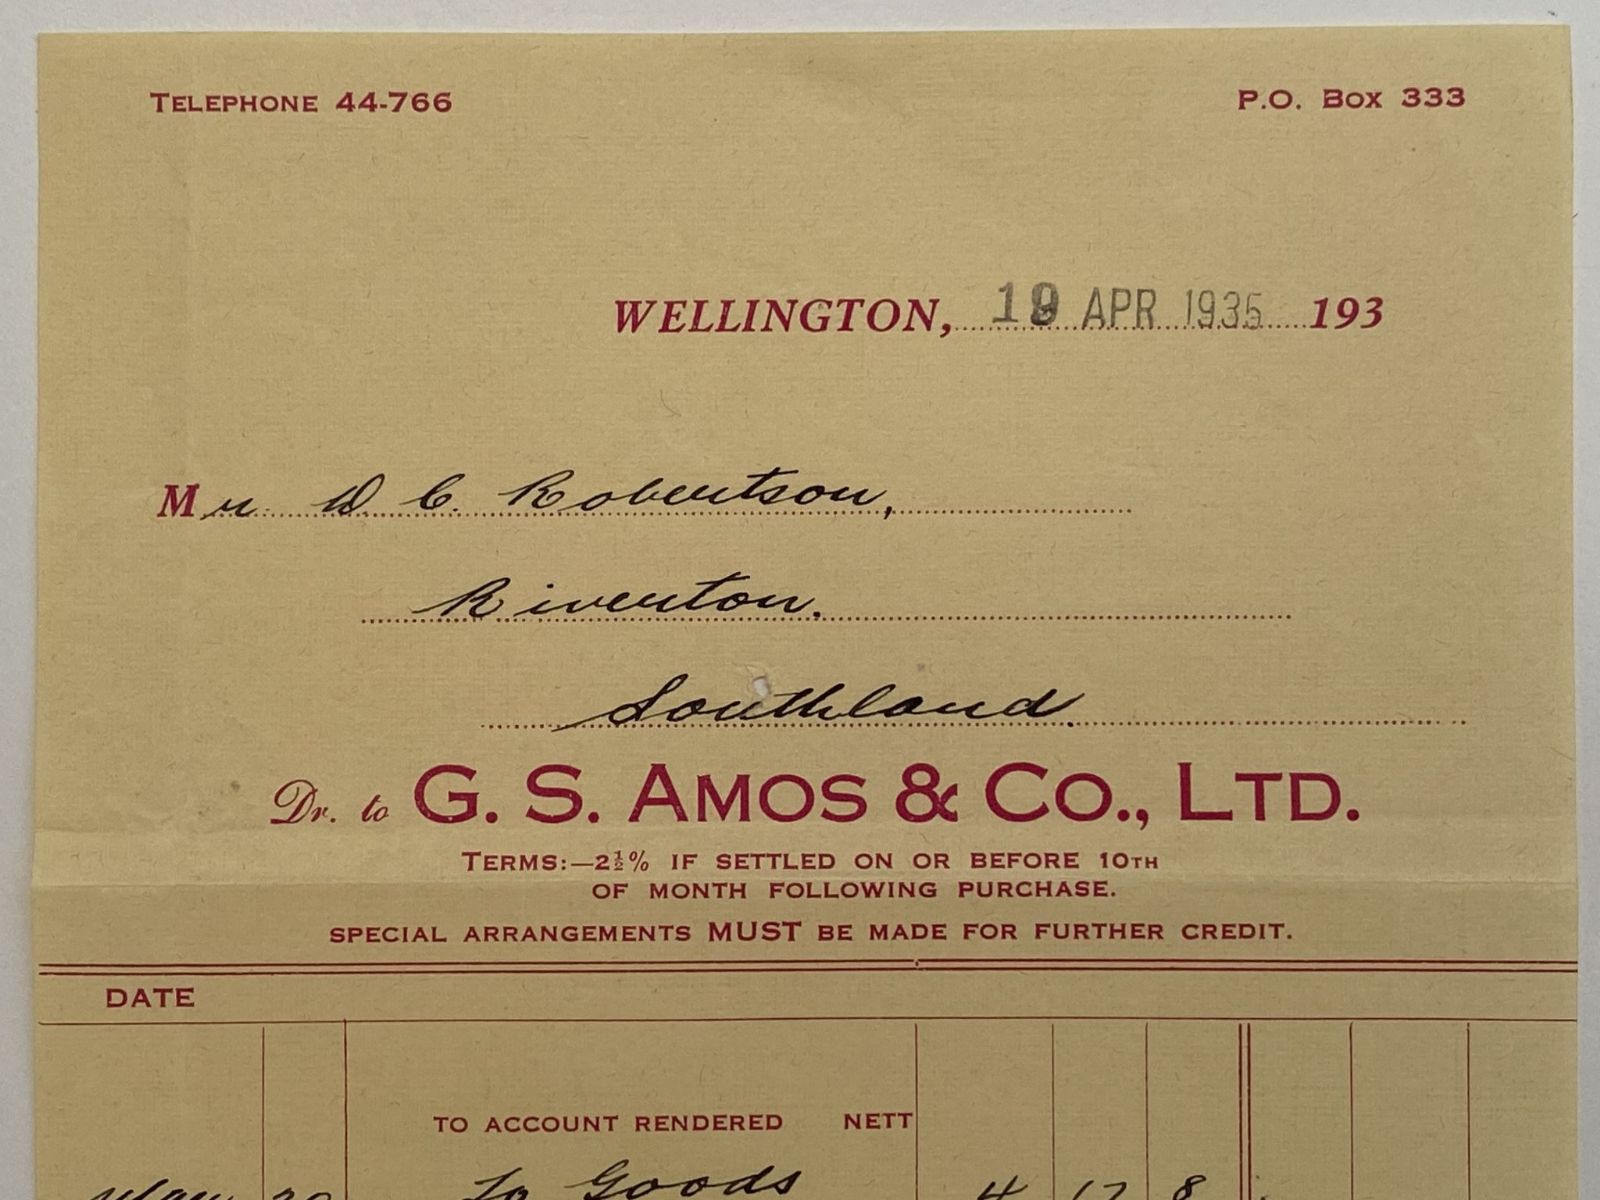 TELEPHONE 44-766 P.O. BOX 333
WELLINGTON, APR 1935 193
Mr. W C. Robertson,
Riverton.
Southland.
Dr. to G. S. AMOS & CO., LTD.
TERMS:—2½% IF SETTLED ON OR BEFORE 10TH
OF MONTH FOLLOWING PURCHASE.
SPECIAL ARRANGEMENTS MUST BE MADE FOR FURTHER CREDIT.
DATE
TO ACCOUNT RENDERED NETT
To Goods 4 17 8